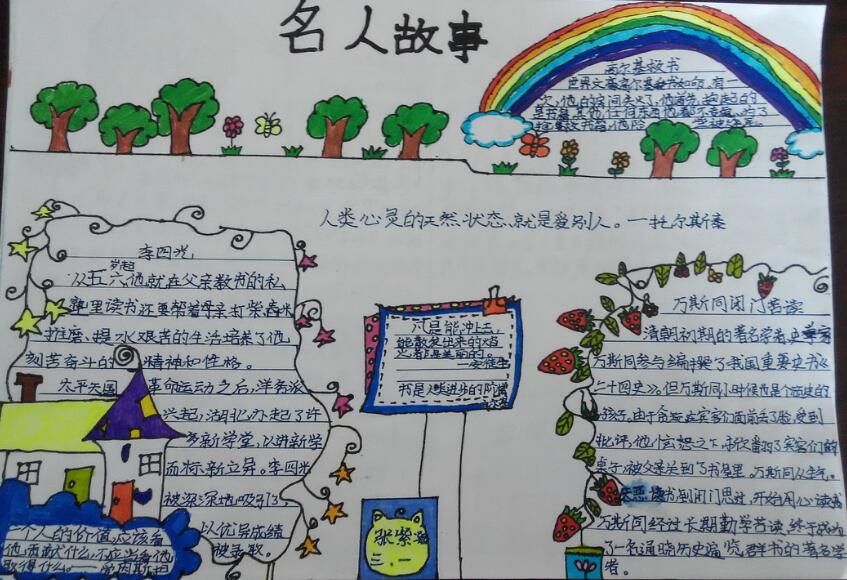 名人故事
高尔基救书
世界文豪高尔基
人类心灵的天然状态,就是爱别人。——托尔斯泰
李四光
从五六岁起他就在父亲教书的私
塾里读书还要帮着母亲打柴,舂米
推磨、提水艰苦的生活培养了他
刻苦奋斗的精神和性格。
太平天国革命运动之后,洋务派
兴起,湖北办起了许
多新学堂,以进新学
而标新立异。李四光
被深深地吸引了,
以优异成绩
被录取。
一个人的价值,应该看
他贡献什么,不应当看他
取得什么。——爱因斯坦
只是能冲去,
能散发出来的
——安徒生
书是人类进步的阶梯
张紫
三.一
万斯同闭门苦读
清朝初期的著名学者史学家
万斯同参与编撰了我国重要史书《
二十四史》。但万斯同小时候也是个顽皮的
孩子。由于贪玩在宾客们面前丢了脸,受到
批评,他恕之下,掀翻了宾客们的
桌子,被父亲关到了书屋里。万斯同从生气。
读书到闭门思过,开始用心读书
万斯同经过长期勤学苦读,终于成为
了一名通晓历史遍览群书的著名学
者。